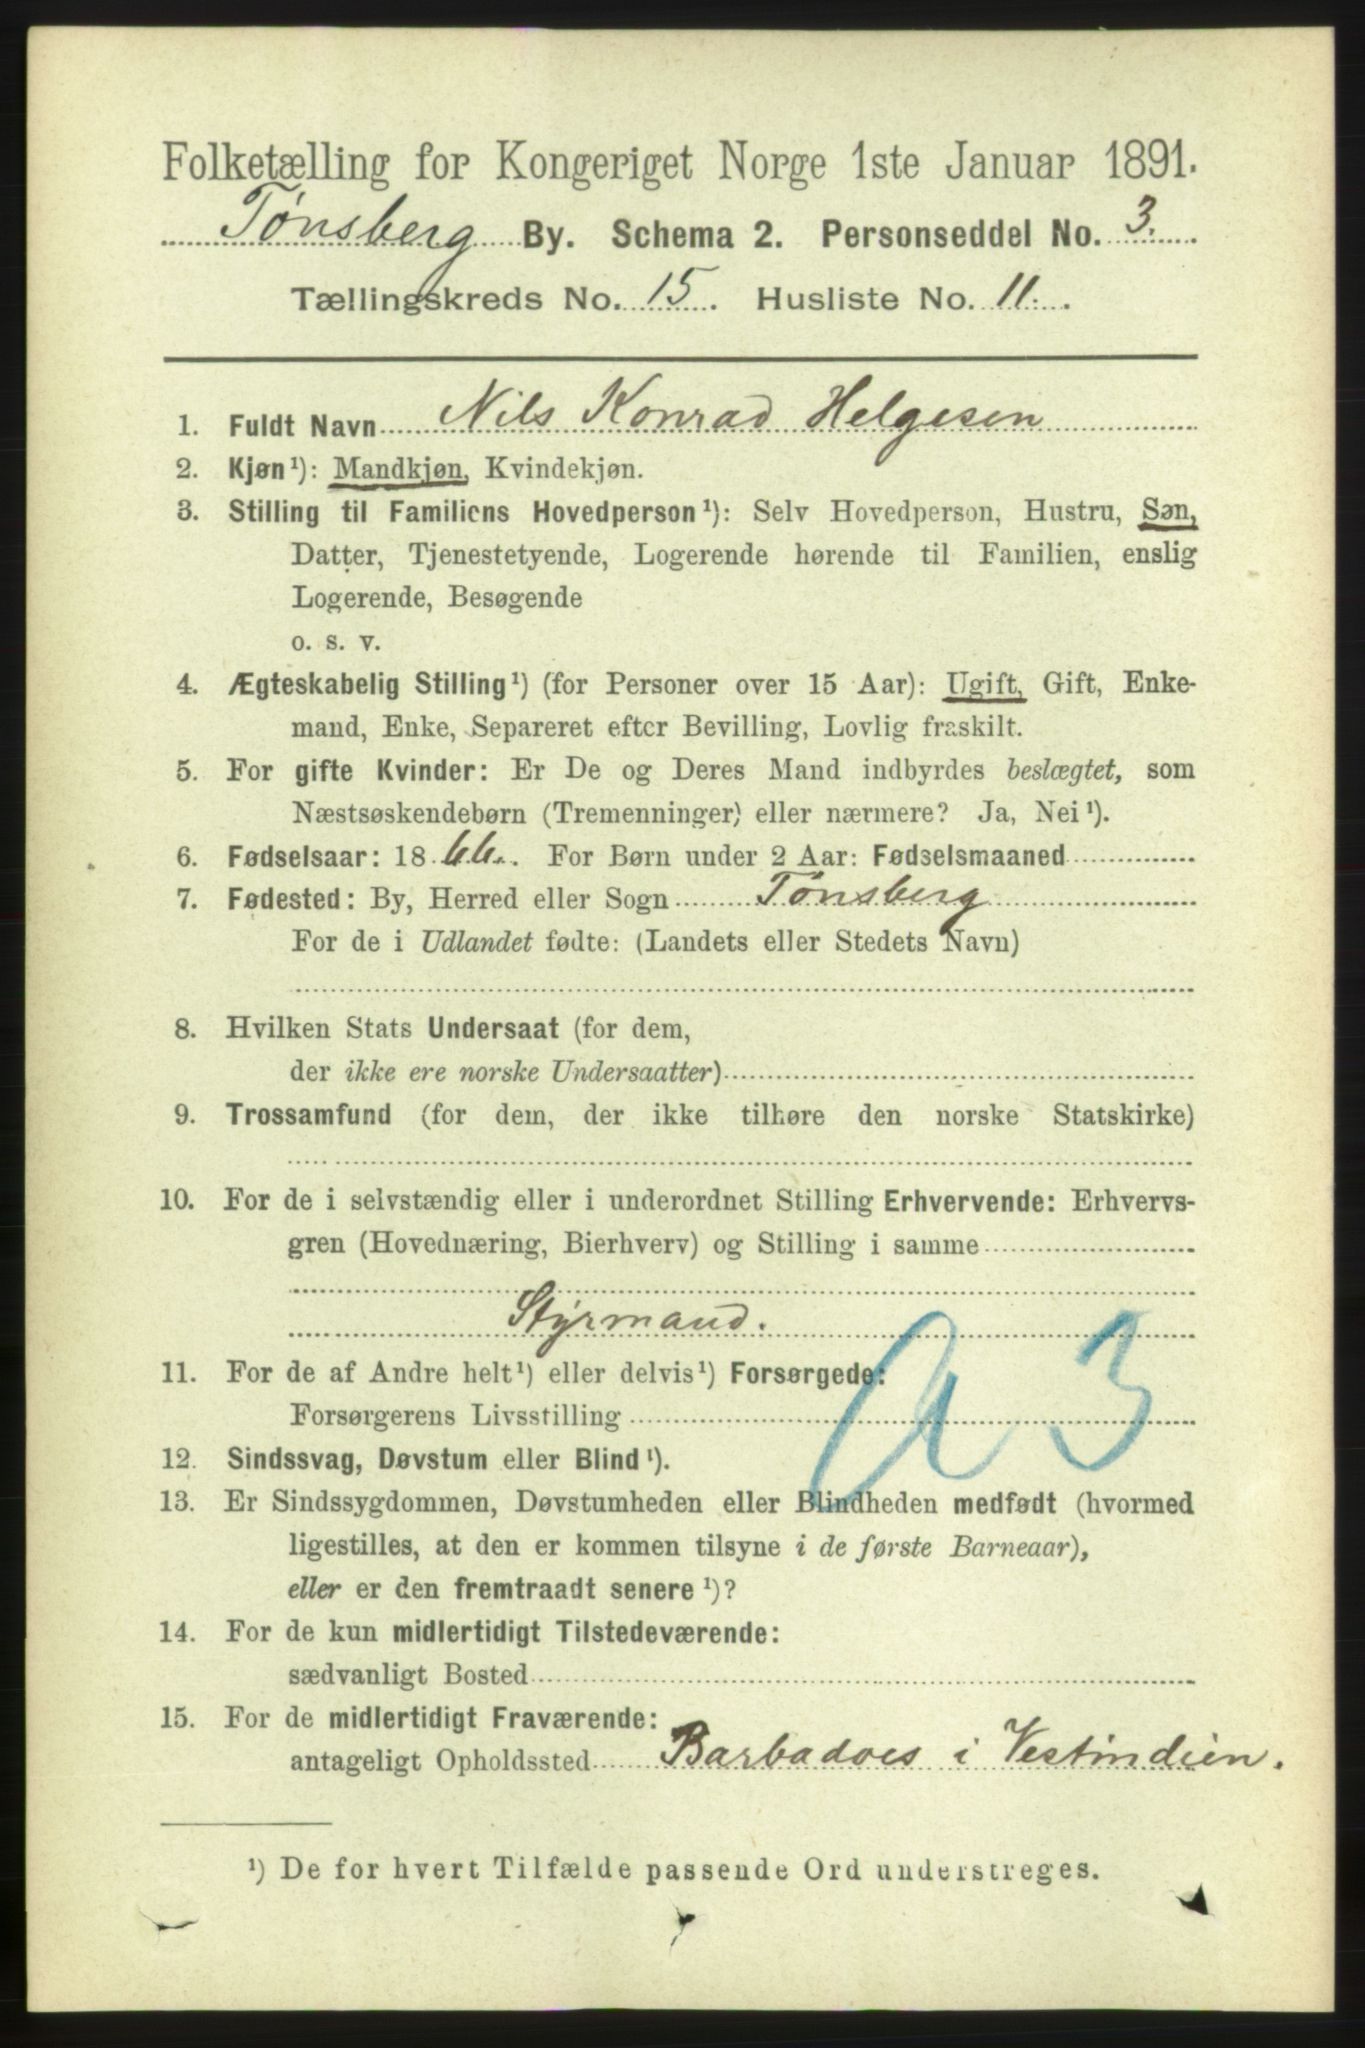 Folketælling for Kongeriget Norge 1ste Januar 1891.
Tønsberg By. Schema 2. Personseddel No. 3.
Tællingskreds No. 15. Husliste No. 11.
1. Fuldt Navn Nils Konrad Helgesen
2. Kjøn¹): Mandkjøn, Kvindekjøn.
3. Stilling til Familiens Hovedperson¹): Selv Hovedperson, Hustru, Søn,
Datter, Tjenestetyende, Logerende hørende til Familien, enslig
Logerende, Besøgende
o. s. v.
4. Ægteskabelig Stilling¹) (for Personer over 15 Aar): Ugift, Gift, Enke-
mand, Enke, Separeret efter Bevilling, Lovlig fraskilt.
5. For gifte Kvinder: Er De og Deres Mand indbyrdes beslægtet, som
Næstsøskendebørn (Tremenninger) eller nærmere? Ja, Nei¹).
6. Fødselsaar: 1866. For Børn under 2 Aar: Fødselsmaaned
7. Fødested: By, Herred eller Sogn Tønsberg
For de i Udlandet fødte: (Landets eller Stedets Navn)
8. Hvilken Stats Undersaat (for dem,
der ikke ere norske Undersaatter)
9. Trossamfund (for dem, der ikke tilhøre den norske Statskirke)
10. For de i selvstændig eller i underordnet Stilling Erhvervende: Erhvervs-
gren (Hovednæring, Bierhverv) og Stilling i samme
Styrmand.
11. For de af Andre helt¹) eller delvis¹) Forsørgede:
Forsørgerens Livsstilling
a 3
12. Sindssvag, Døvstum eller Blind¹).
13. Er Sindssygdommen, Døvstumheden eller Blindheden medfødt (hvormed
ligestilles, at den er kommen tilsyne i de første Barneaar),
eller er den fremtraadt senere¹)?
14. For de kun midlertidigt Tilstedeværende:
sædvanligt Bosted
15. For de midlertidigt Fraværende:
antageligt Opholdssted Barbadoes i Vestindien.
¹) De for hvert Tilfælde passende Ord understreges.